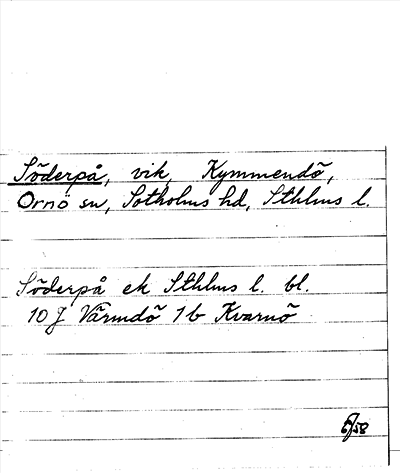 Söderpå, vik, Kymmendö,
Ornö sn, Sotholms hd, Sthlms l.
Söderpå ek Sthlms l. bl.
10 J Värmdö 1b Kvarnö